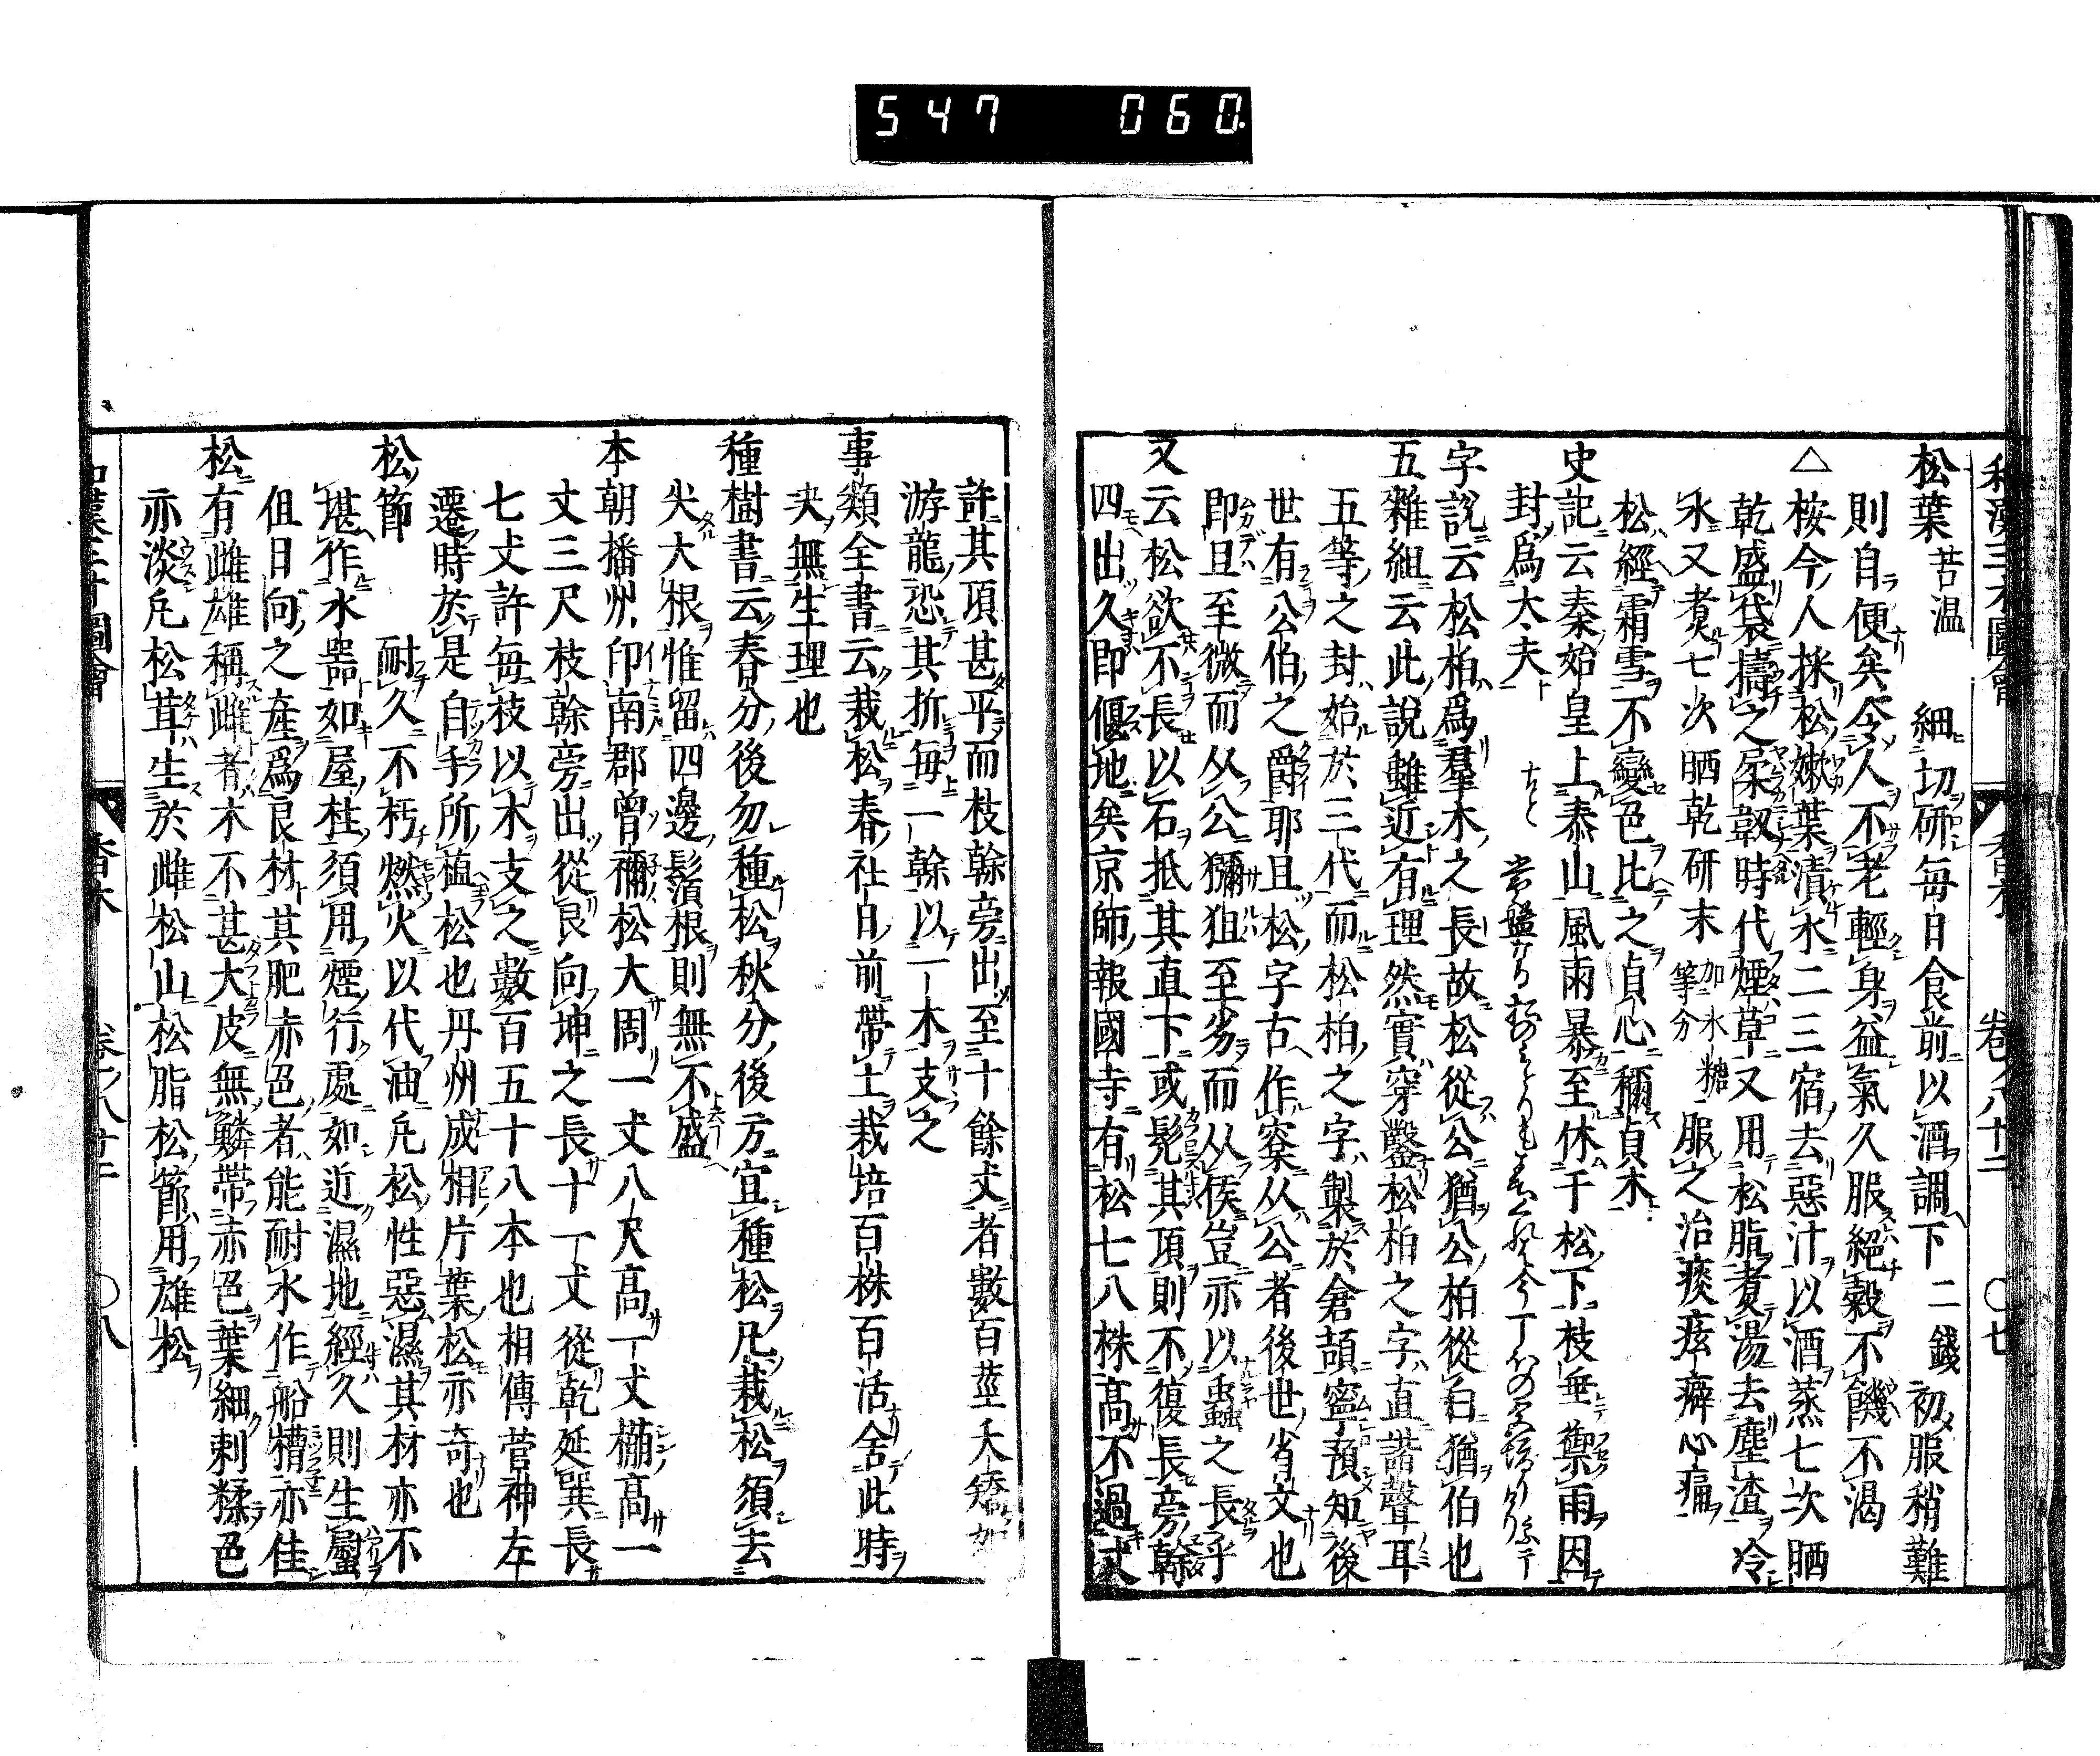 547 060
和漢三才圖會 香木 卷ノ八十二 〇七
松葉 苦温 細切研每日食前以酒調下二錢初服稍難
則自便矣令人不老輕身益氣久服絕穀不饑不渴
△桉今人採松嫩葉漬水二三宿去惡汁以酒蒸七次晒
乾盛袋擣之柔韌時代煙草又用松脂煑湯去塵渣冷
水又煑七次晒乾研末 加氷糖等分 服之治痰痃癖心痛
松經霜雪不變色比之貞心稱貞木
史記云秦始皇上泰山風雨暴至休于松下枝垂禦雨因
封爲大夫
字說云松柏爲羣木之長故松從公猶公柏從白猶伯也
五雜組云此說雖近有理然實穿鑿松柏之字直諧聲耳
五等之封始於三代而松柏之字製於倉頡寧預知後
世有公伯之爵耶且松字古作㮤从公者後世省文也
即且至微而从公獼狙至劣而从侯豈亦以蟲之長乎
又云松欲不長以石抵其直下或髡其頂則不復長旁幹
四出久即偃地矣京師報國寺有松七八株高不過丈
許其頂甚平而枝幹旁出至十餘丈者數百莖夭矯如
游龍恐其折每一幹以一木支之
事類全書云栽松春社日前帶土栽培百株百活舍此時
夬無生理也
種樹書云春分後勿種松秋分後方宜種松凡栽松須去
大根惟留四邊鬚根則無不盛
本朝播州印南郡曾禰松大周一丈八尺高一丈棚高一
丈三尺枝幹旁出從艮向坤之長十一丈從乾延巽長
七丈許每枝以木支之數百五十八本也相傳菅神左
遷時於是自手所𦿔松也丹州成相片葉松亦奇也
松節 耐久不朽燃火以代油凡松性惡濕其材亦不
堪作水噐如屋柱須用煙行處如近濕地經久則生螱
但日向之產爲良材其肥赤色者能耐水作船槽亦佳
松有雌雄稱雌者木不甚大皮無鱗帶赤色葉細剌㹛色
亦淡凡松茸生於雌松山松脂松節用雄松
和漢三才圖會 香木 卷ノ八十二 〇八